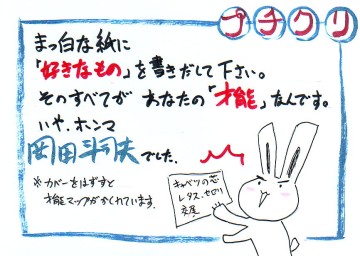 プチクリ
まっ白な紙に
「好きなもの」を書きだして下さい。
そのすべてが あなたの「才能」なんです。
いや、ホンマ
岡田斗司夫でした。
※カバーをはずすと
才能マップがかくれています。
キャベツの芯
レタス、セロリ